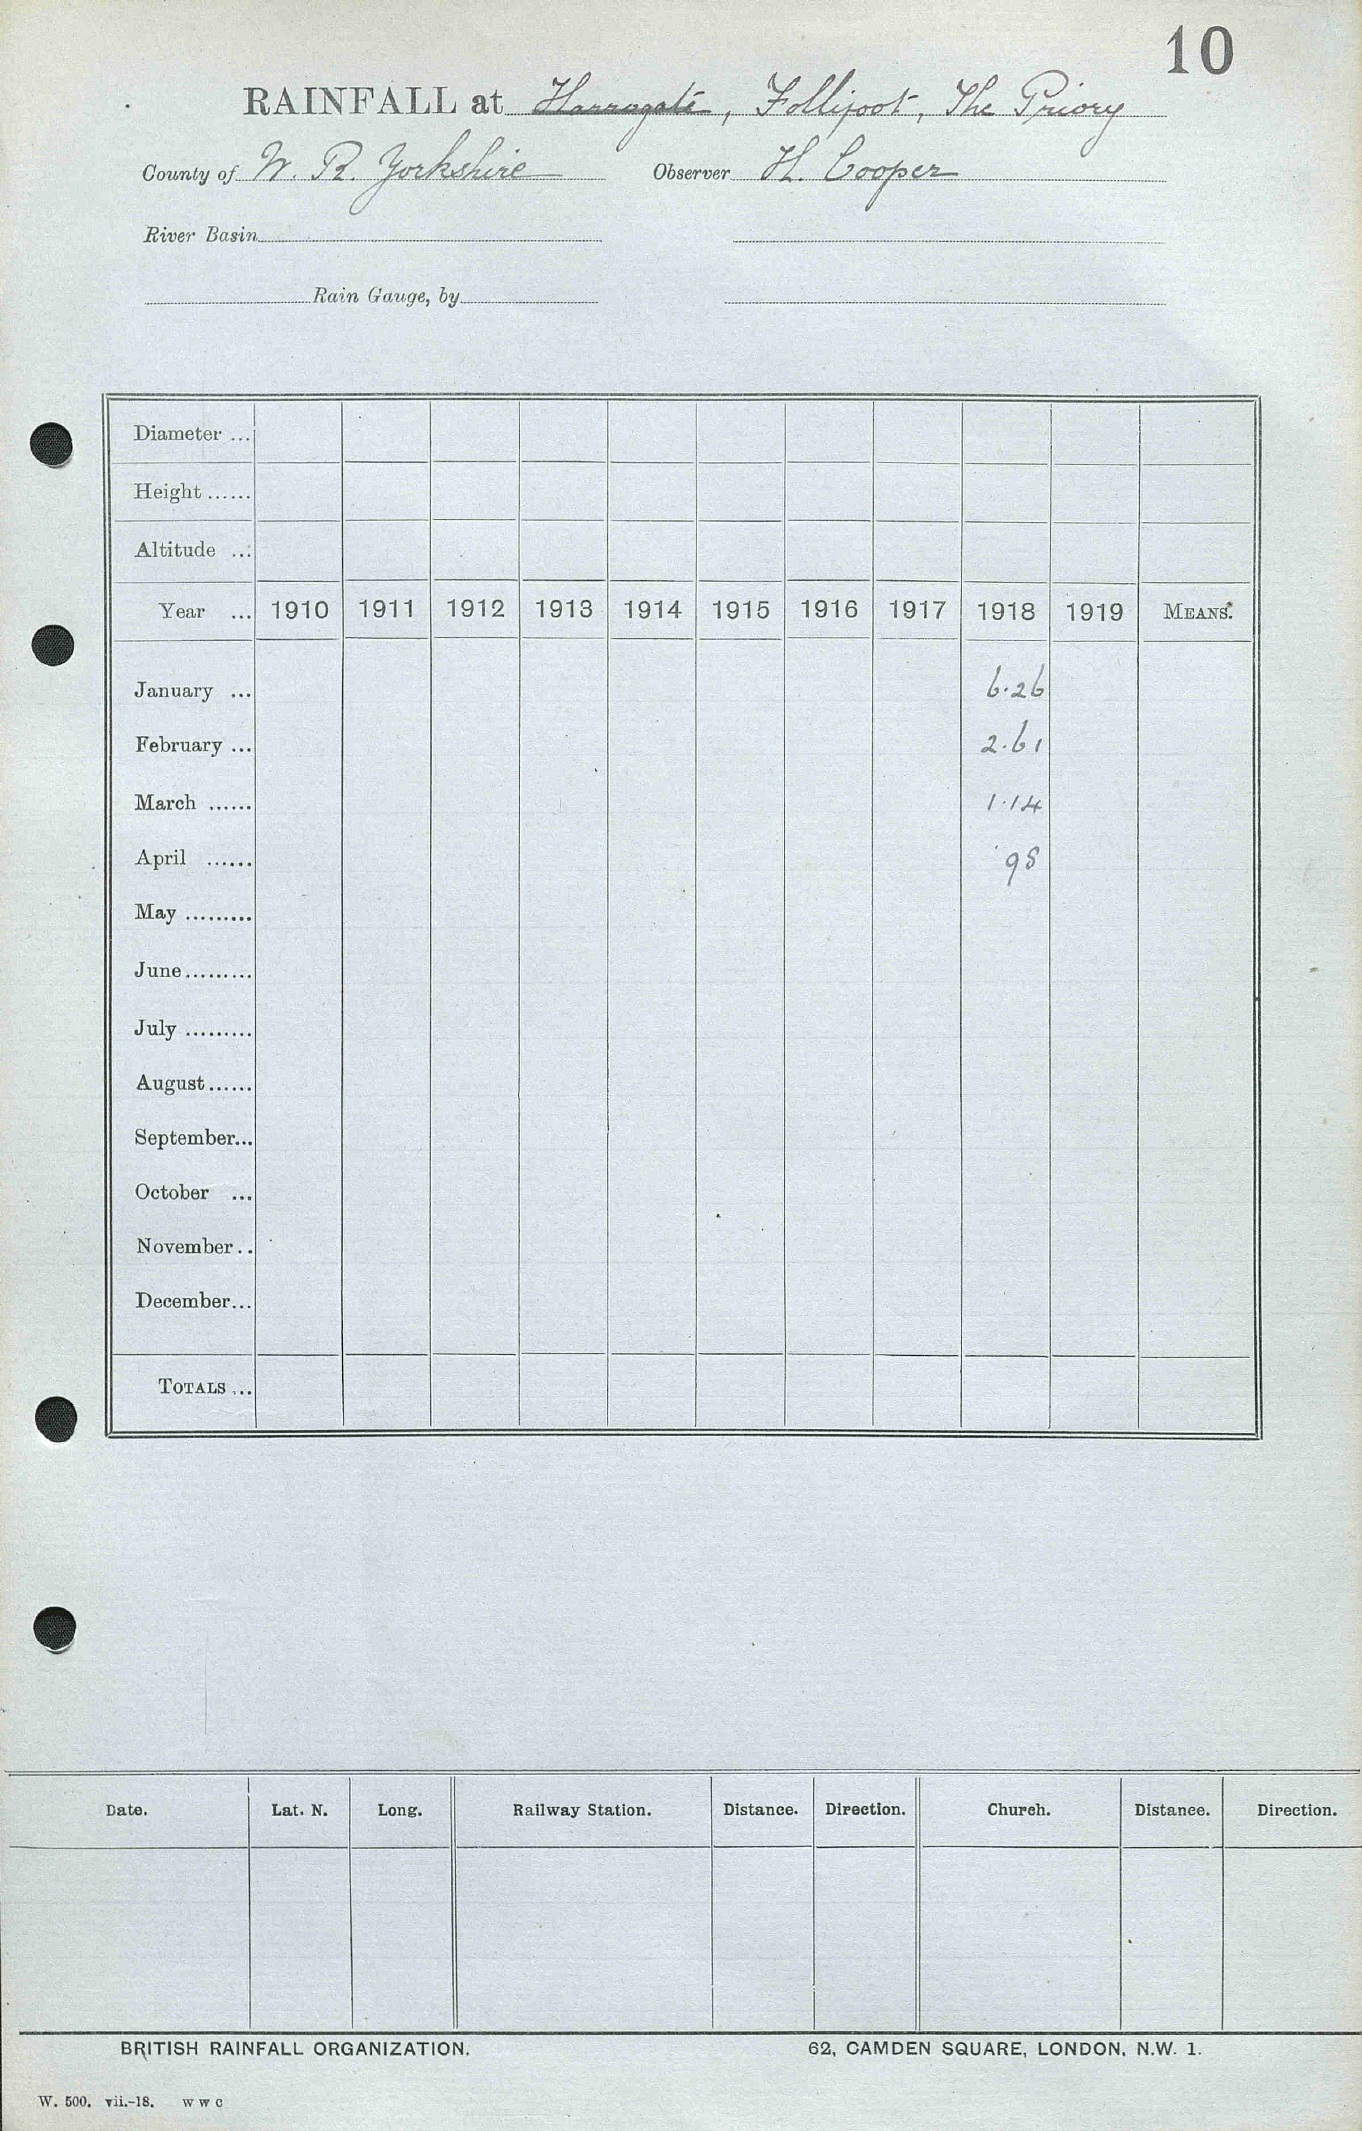 10
RAINFALL at Harrogate, Follifoot, The Priory
County of W. R. Yorkshire Observer H. Cooper
River Basin
Rain Gauge, by
Diameter ...
Height ......
Altitude ...
Year ... 1910 1911 1912 1913 1914 1915 1916 1917 1918 1919 MEANS.
January ... 6.26
February ... 2.61
March ...... 1.14
April ...... .98
May .........
June.........
July .........
August......
September...
October ...
November..
December...
TOTALS ...
Date. Lat. N. Long. Railway Station. Distance. Direction. Church. Distance. Direction.
BRITISH RAINFALL ORGANIZATION. 62, CAMDEN SQUARE, LONDON, N.W. 1.
W. 500. vii.-18. W W C